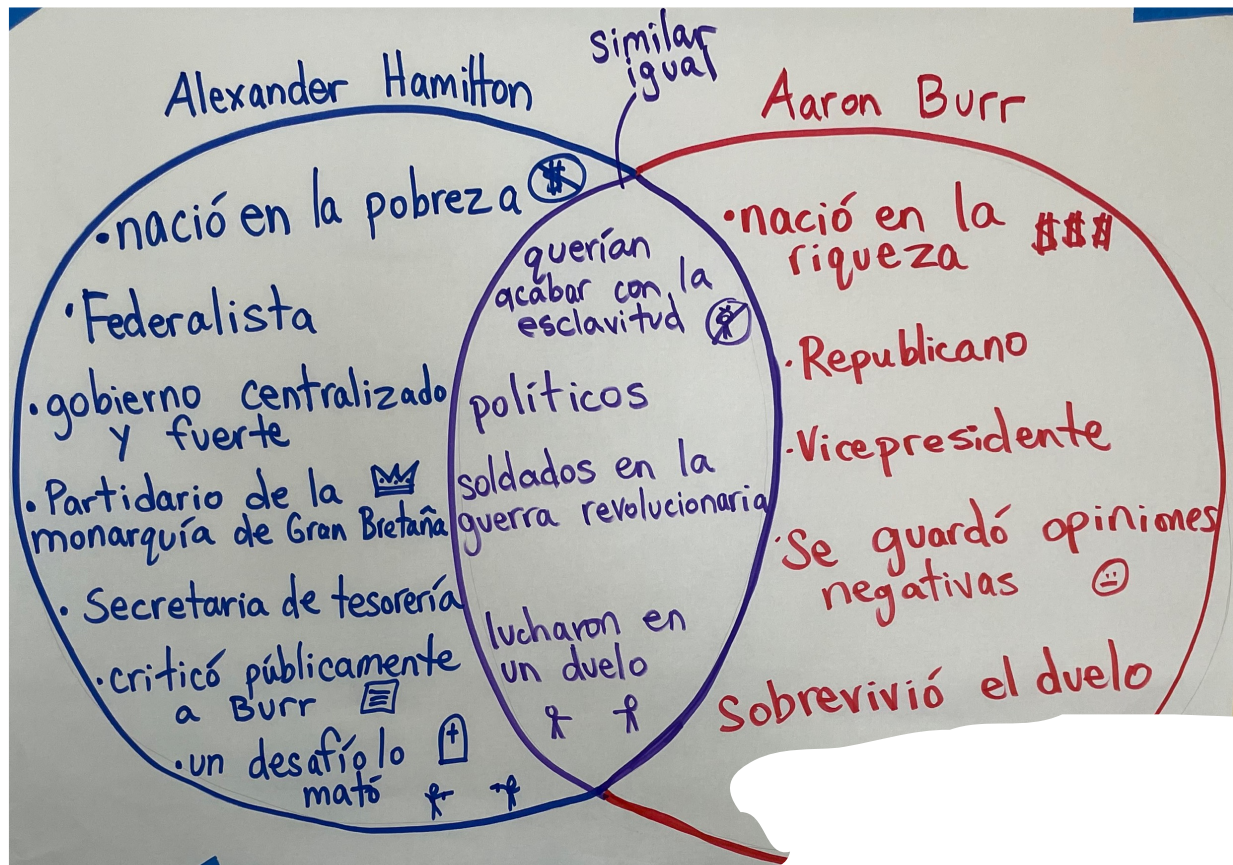 similar
igual
Alexander Hamilton
Aaron Burr
•nació en la pobreza $
•Federalista
•gobierno centralizado
y fuerte
•Partidario de la
monarquía de Gran Bretaña
•Secretaria de tesorería
•criticó públicamente
a Burr
•un desafío lo
mató
querían
acabar con la
esclavitud
políticos
soldados en la
guerra revolucionaria
lucharon en
un duelo
•nació en la $$$
riqueza
•Republicano
•Vicepresidente
•Se guardó opiniones
negativas
Sobrevivió el duelo